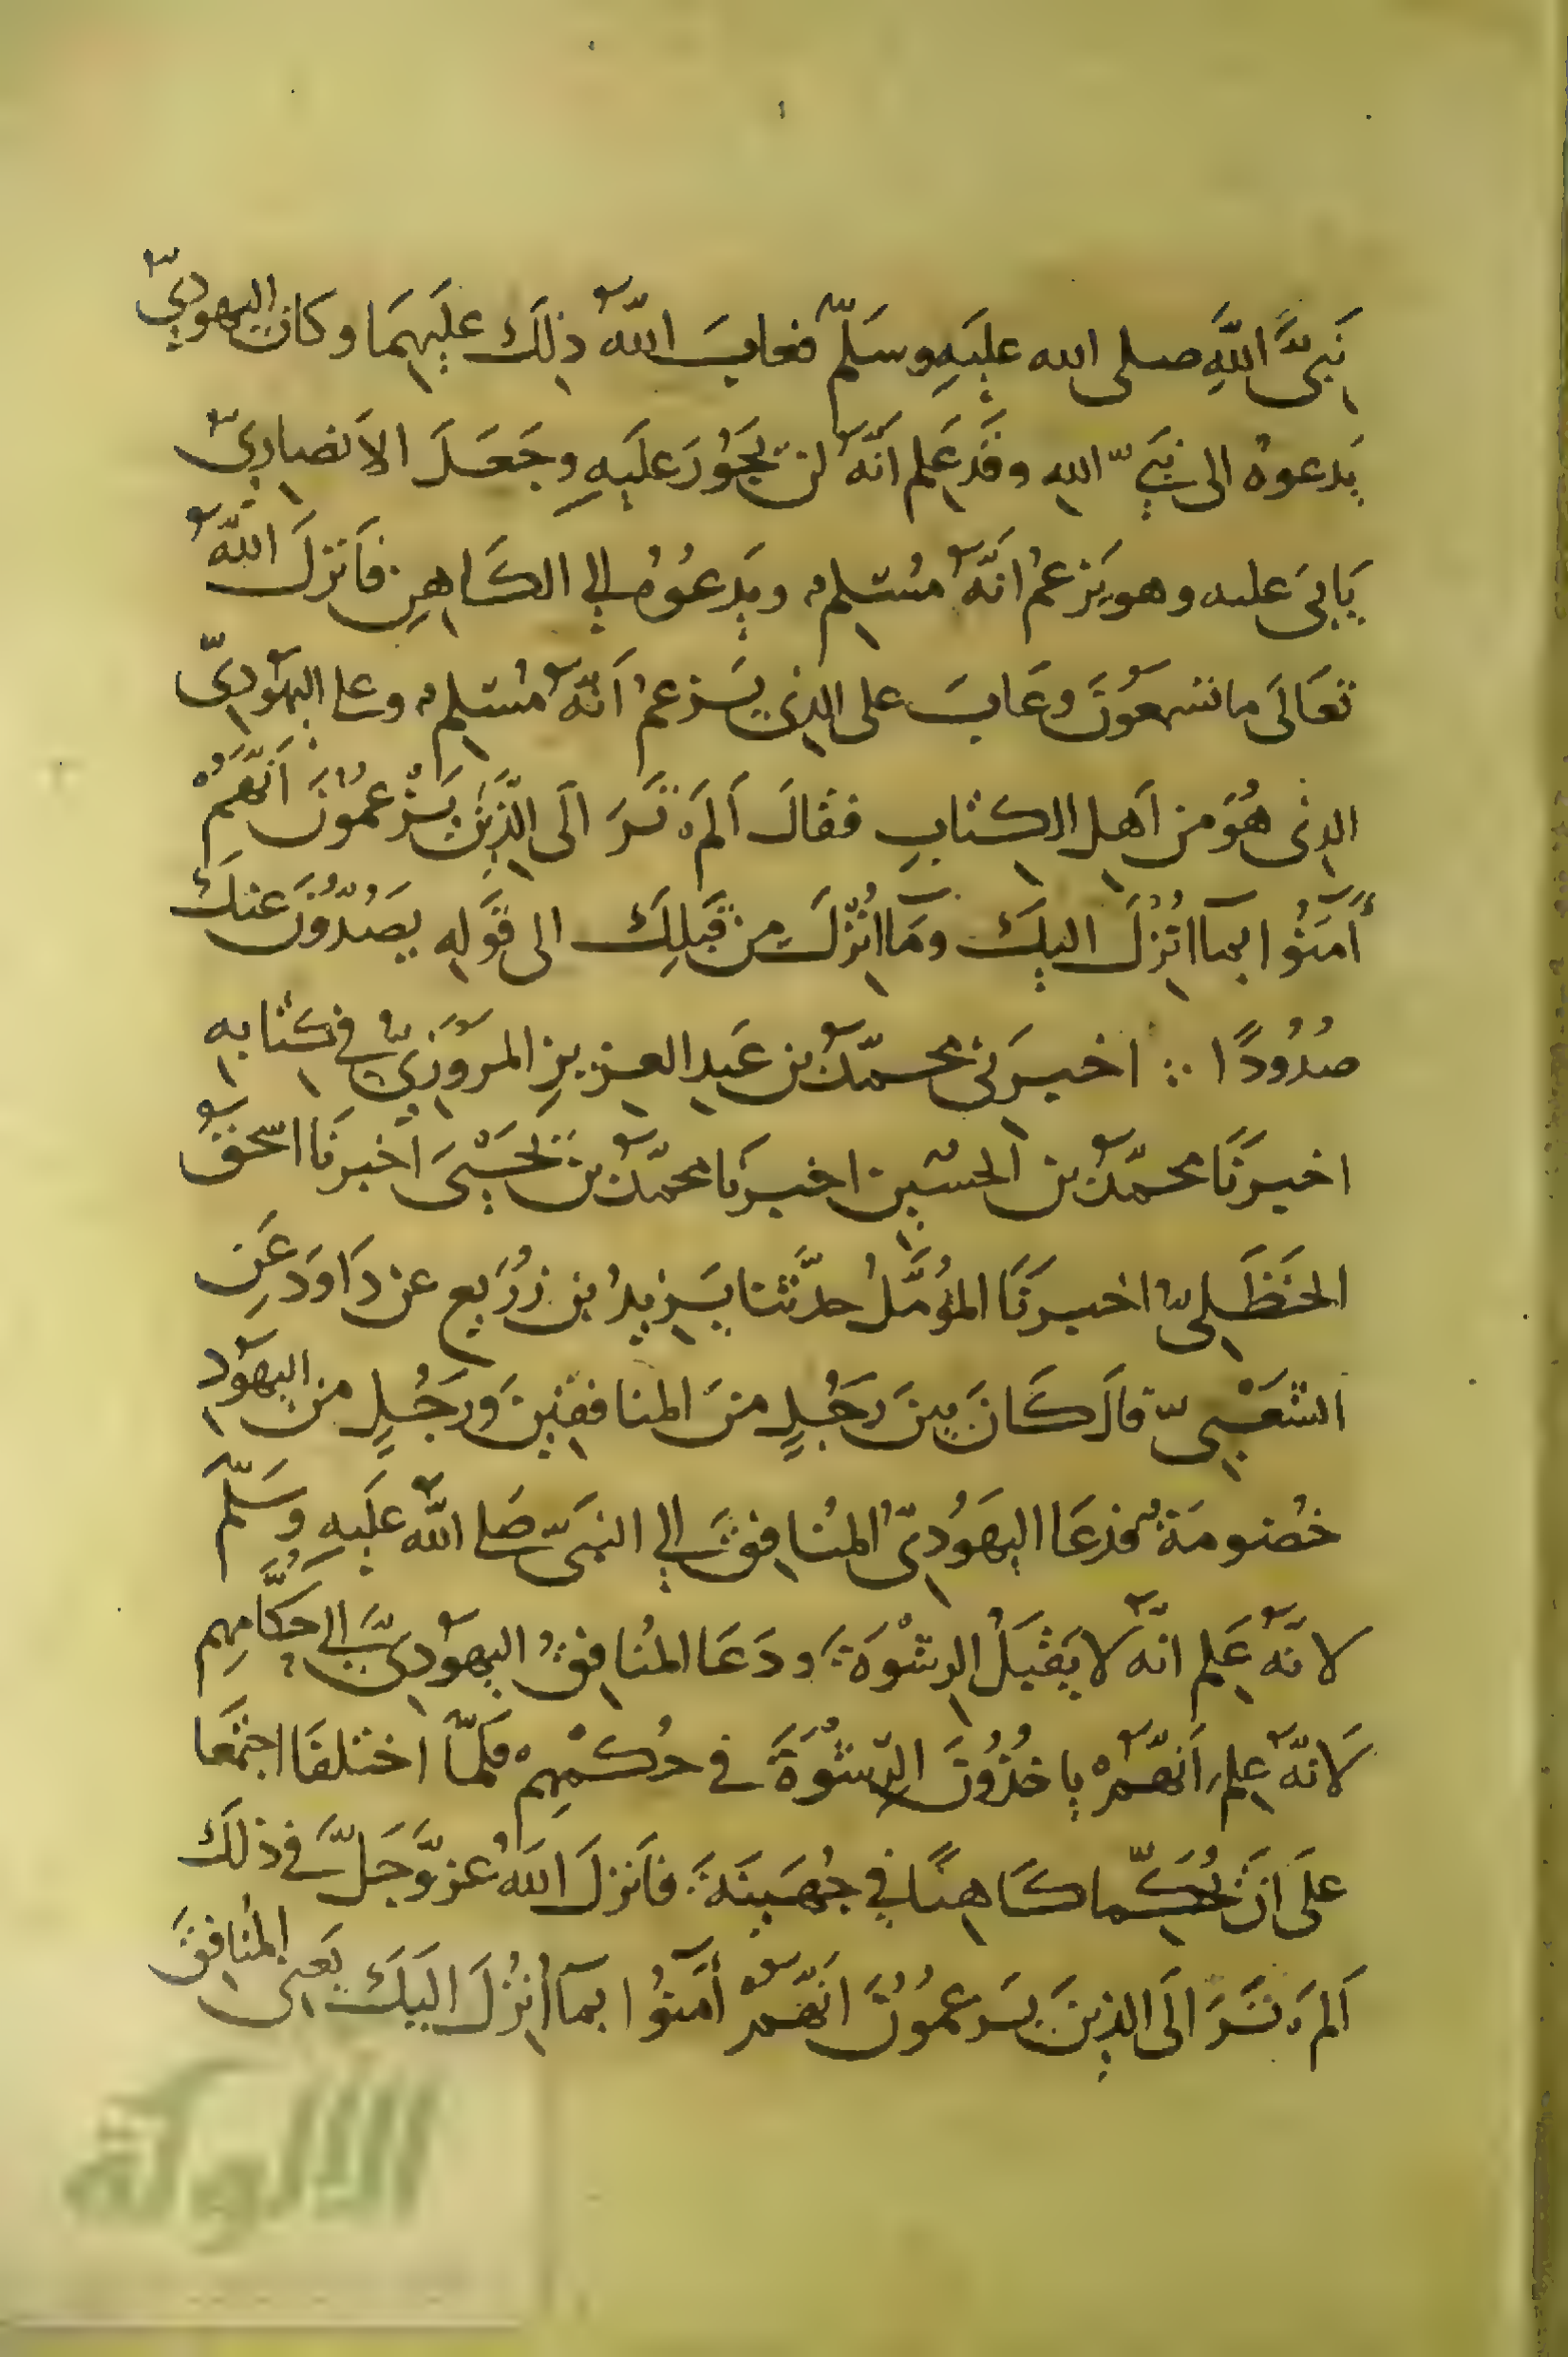 نَبِيَّ اللَّهِ صلى الله عليه وسلّم فعابَ اللهُ ذلك عليهما وكان اليهوديّ
يدعوهُ الى نبيّ الله وقد علم انّه لن يجورَ عليه وجعلَ الانصاريّ
يابى عليه وهو يزعمُ انّه مسلم ويدعوهُ الى الكاهن فانزلَ اللهُ
تعالى ما تسمعونَ وعابَ على الذي يزعمُ انّه مسلم وعلى اليهوديّ
الذى هو من اهل الكتابِ فقالَ الم ترَ الى الذين يزعمونَ انّهم
آمنوا بما انزلَ اليكَ وما انزلَ من قبلكَ الى قوله يصدّونَ عنكَ
صدودًا ∴ اخبرنى محمّد بن عبد العزيز المروزيّ في كتابه
اخبرنا محمّد بن الحسين اخبرنا محمّد بن يحيى اخبرنا اسحق
الحنظليّ اخبرنا المؤمَّلُ حدّثنا يزيدُ بن زُرَيع عن داودَ عن
الشعبيّ قال كانَ بينَ رجلٍ من المنافقين ورجلٍ من اليهود
خصومةٌ فدعا اليهوديّ المنافقَ الى النبىّ صلى الله عليه وسلّم
لانّه علم انّه لا يقبلُ الرشوةَ ودعا المنافقُ اليهوديَّ الى حكّامهم
لانّه علم انّهم ياخذونَ الرّشوةَ في حكمهم فلمّا اختلفا اجتمعا
على ان يحكّما كاهنًا في جهينةَ فانزلَ اللهُ عزّ وجلّ في ذلكَ
الم ترَ الى الذينَ يزعمونَ انّهم آمنوا بما انزلَ اليكَ يعنى المنافقَ
الألوكة